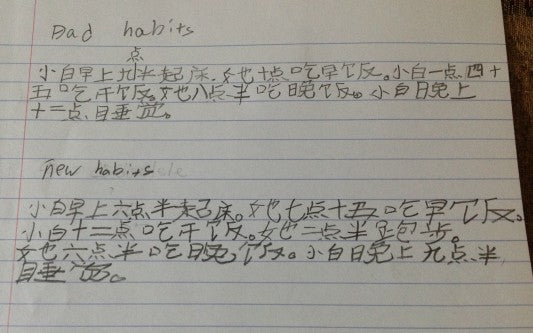 Bad habits
点
小白早上九半起床.她十点吃早饭。小白一点四十
五吃午饭。她八点半吃晚饭。小白日免上
十二点目垂觉。
new habits
小白早上六点半起床。她七点十五吃早饭。
小白十二点吃午饭。她二点半跑步。
她六点半吃晚饭。小白晚上九点半
睡觉。